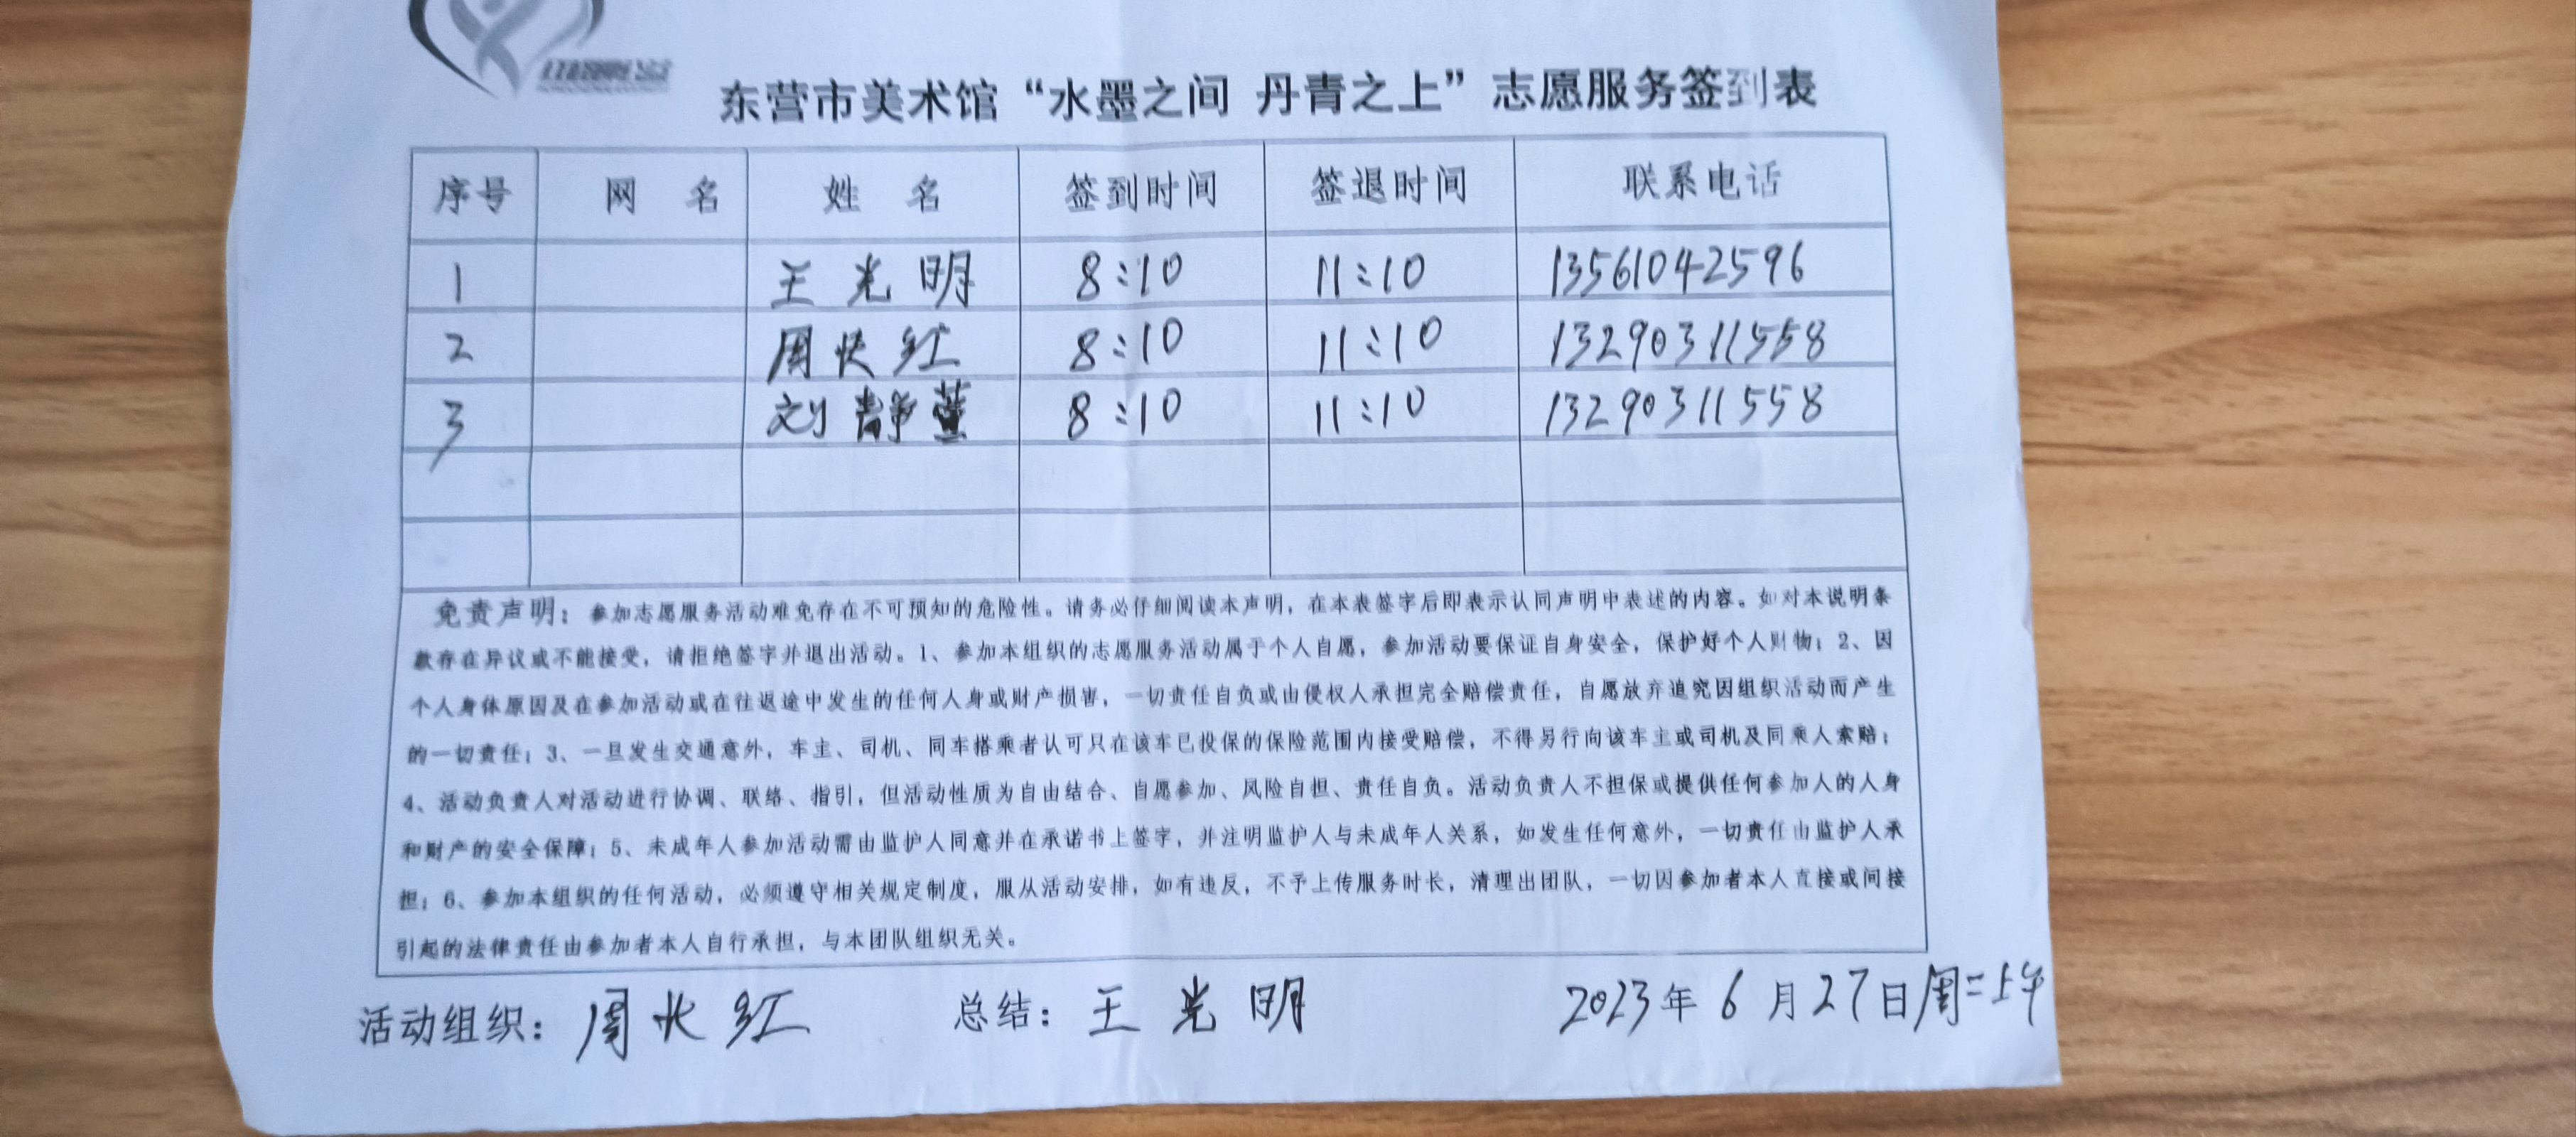 东营市美术馆“水墨之间 丹青之上”志愿服务签到表
序号 网 名 姓 名 签到时间 签退时间 联系电话
1 王光明 8:10 11:10 13561042596
2 周长红 8:10 11:10 13290311558
3 刘静萱 8:10 11:10 13290311558
免责声明：参加志愿服务活动难免存在不可预知的危险性。请务必仔细阅读本声明，在本表签字后即表示认同声明中表述的内容。如对本说明条
款存在异议或不能接受，请拒绝签字并退出活动。1、参加本组织的志愿服务活动属于个人自愿，参加活动要保证自身安全，保护好个人财物；2、因
个人身体原因及在参加活动或在往返途中发生的任何人身或财产损害，一切责任自负或由侵权人承担完全赔偿责任，自愿放弃追究因组织活动而产生
的一切责任；3、一旦发生交通意外，车主、司机、同车搭乘者认可只在该车已投保的保险范围内接受赔偿，不得另行向该车主或司机及同乘人索赔；
4、活动负责人对活动进行协调、联络、指引，但活动性质为自由结合、自愿参加、风险自担、责任自负。活动负责人不担保或提供任何参加人的人身
和财产的安全保障；5、未成年人参加活动需由监护人同意并在承诺书上签字，并注明监护人与未成年人关系，如发生任何意外，一切责任由监护人承
担；6、参加本组织的任何活动，必须遵守相关规定制度，服从活动安排，如有违反，不予上传服务时长，清理出团队，一切因参加者本人直接或间接
引起的法律责任由参加者本人自行承担，与本团队组织无关。
活动组织：周长红 总结：王光明 2023年6月27日周二上午